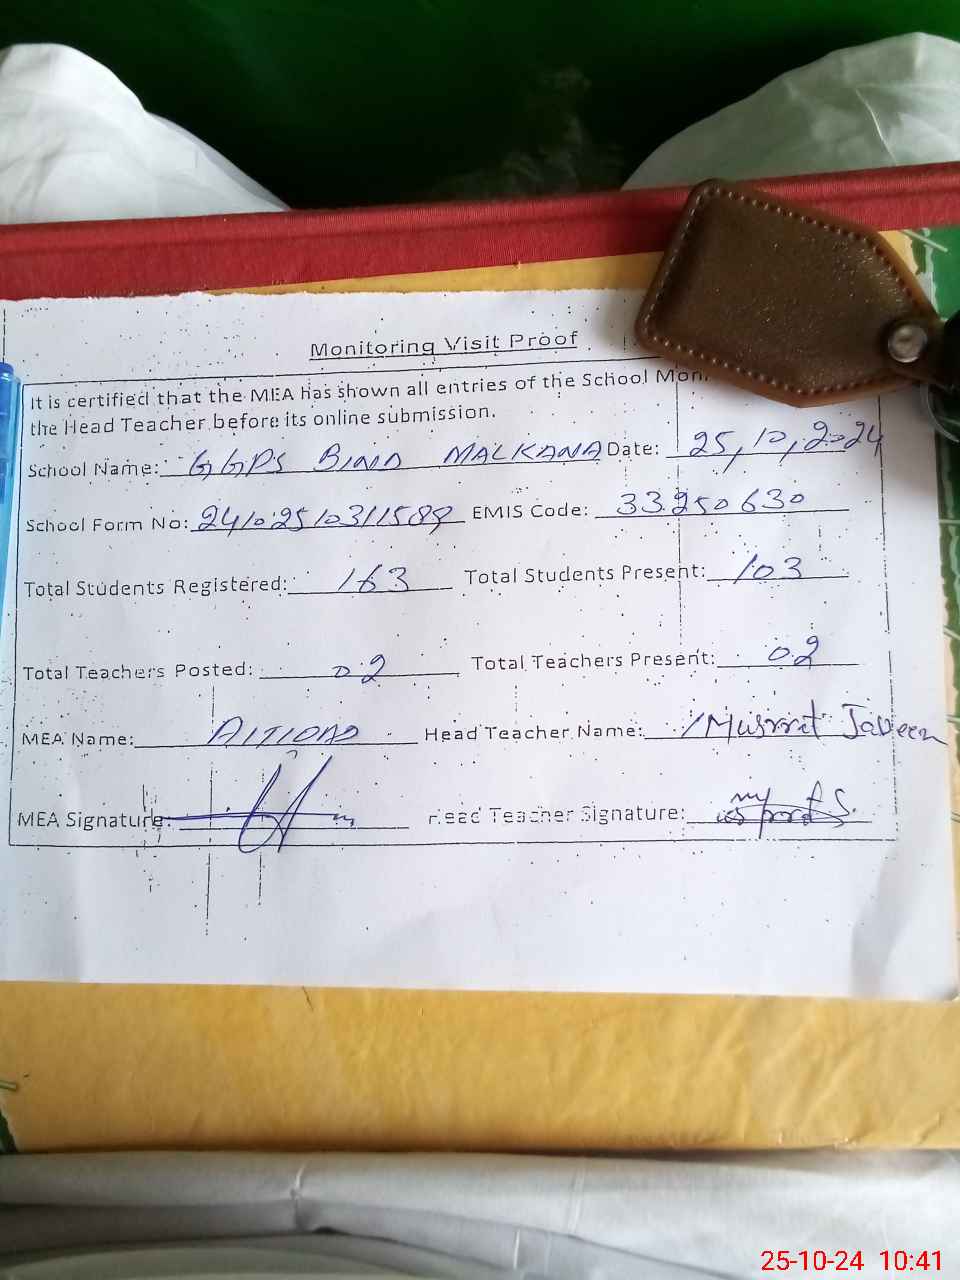 Monitoring Visit Proof
It is certified that the MEA has shown all entries of the School Mon
the Head Teacher before its online submission.
School Name: GGPS BIND MALKANA Date: 25,10,2024
School Form No: EMIS Code: 33250630
Total Students Registered: 163 Total Students Present: 103
Total Teachers Posted: 02 Total Teachers Present: 02
MEA Name: Head Teacher Name: Musrrat Javeen
MEA Signature: Head Teacher Signature:
25-10-24 10:41